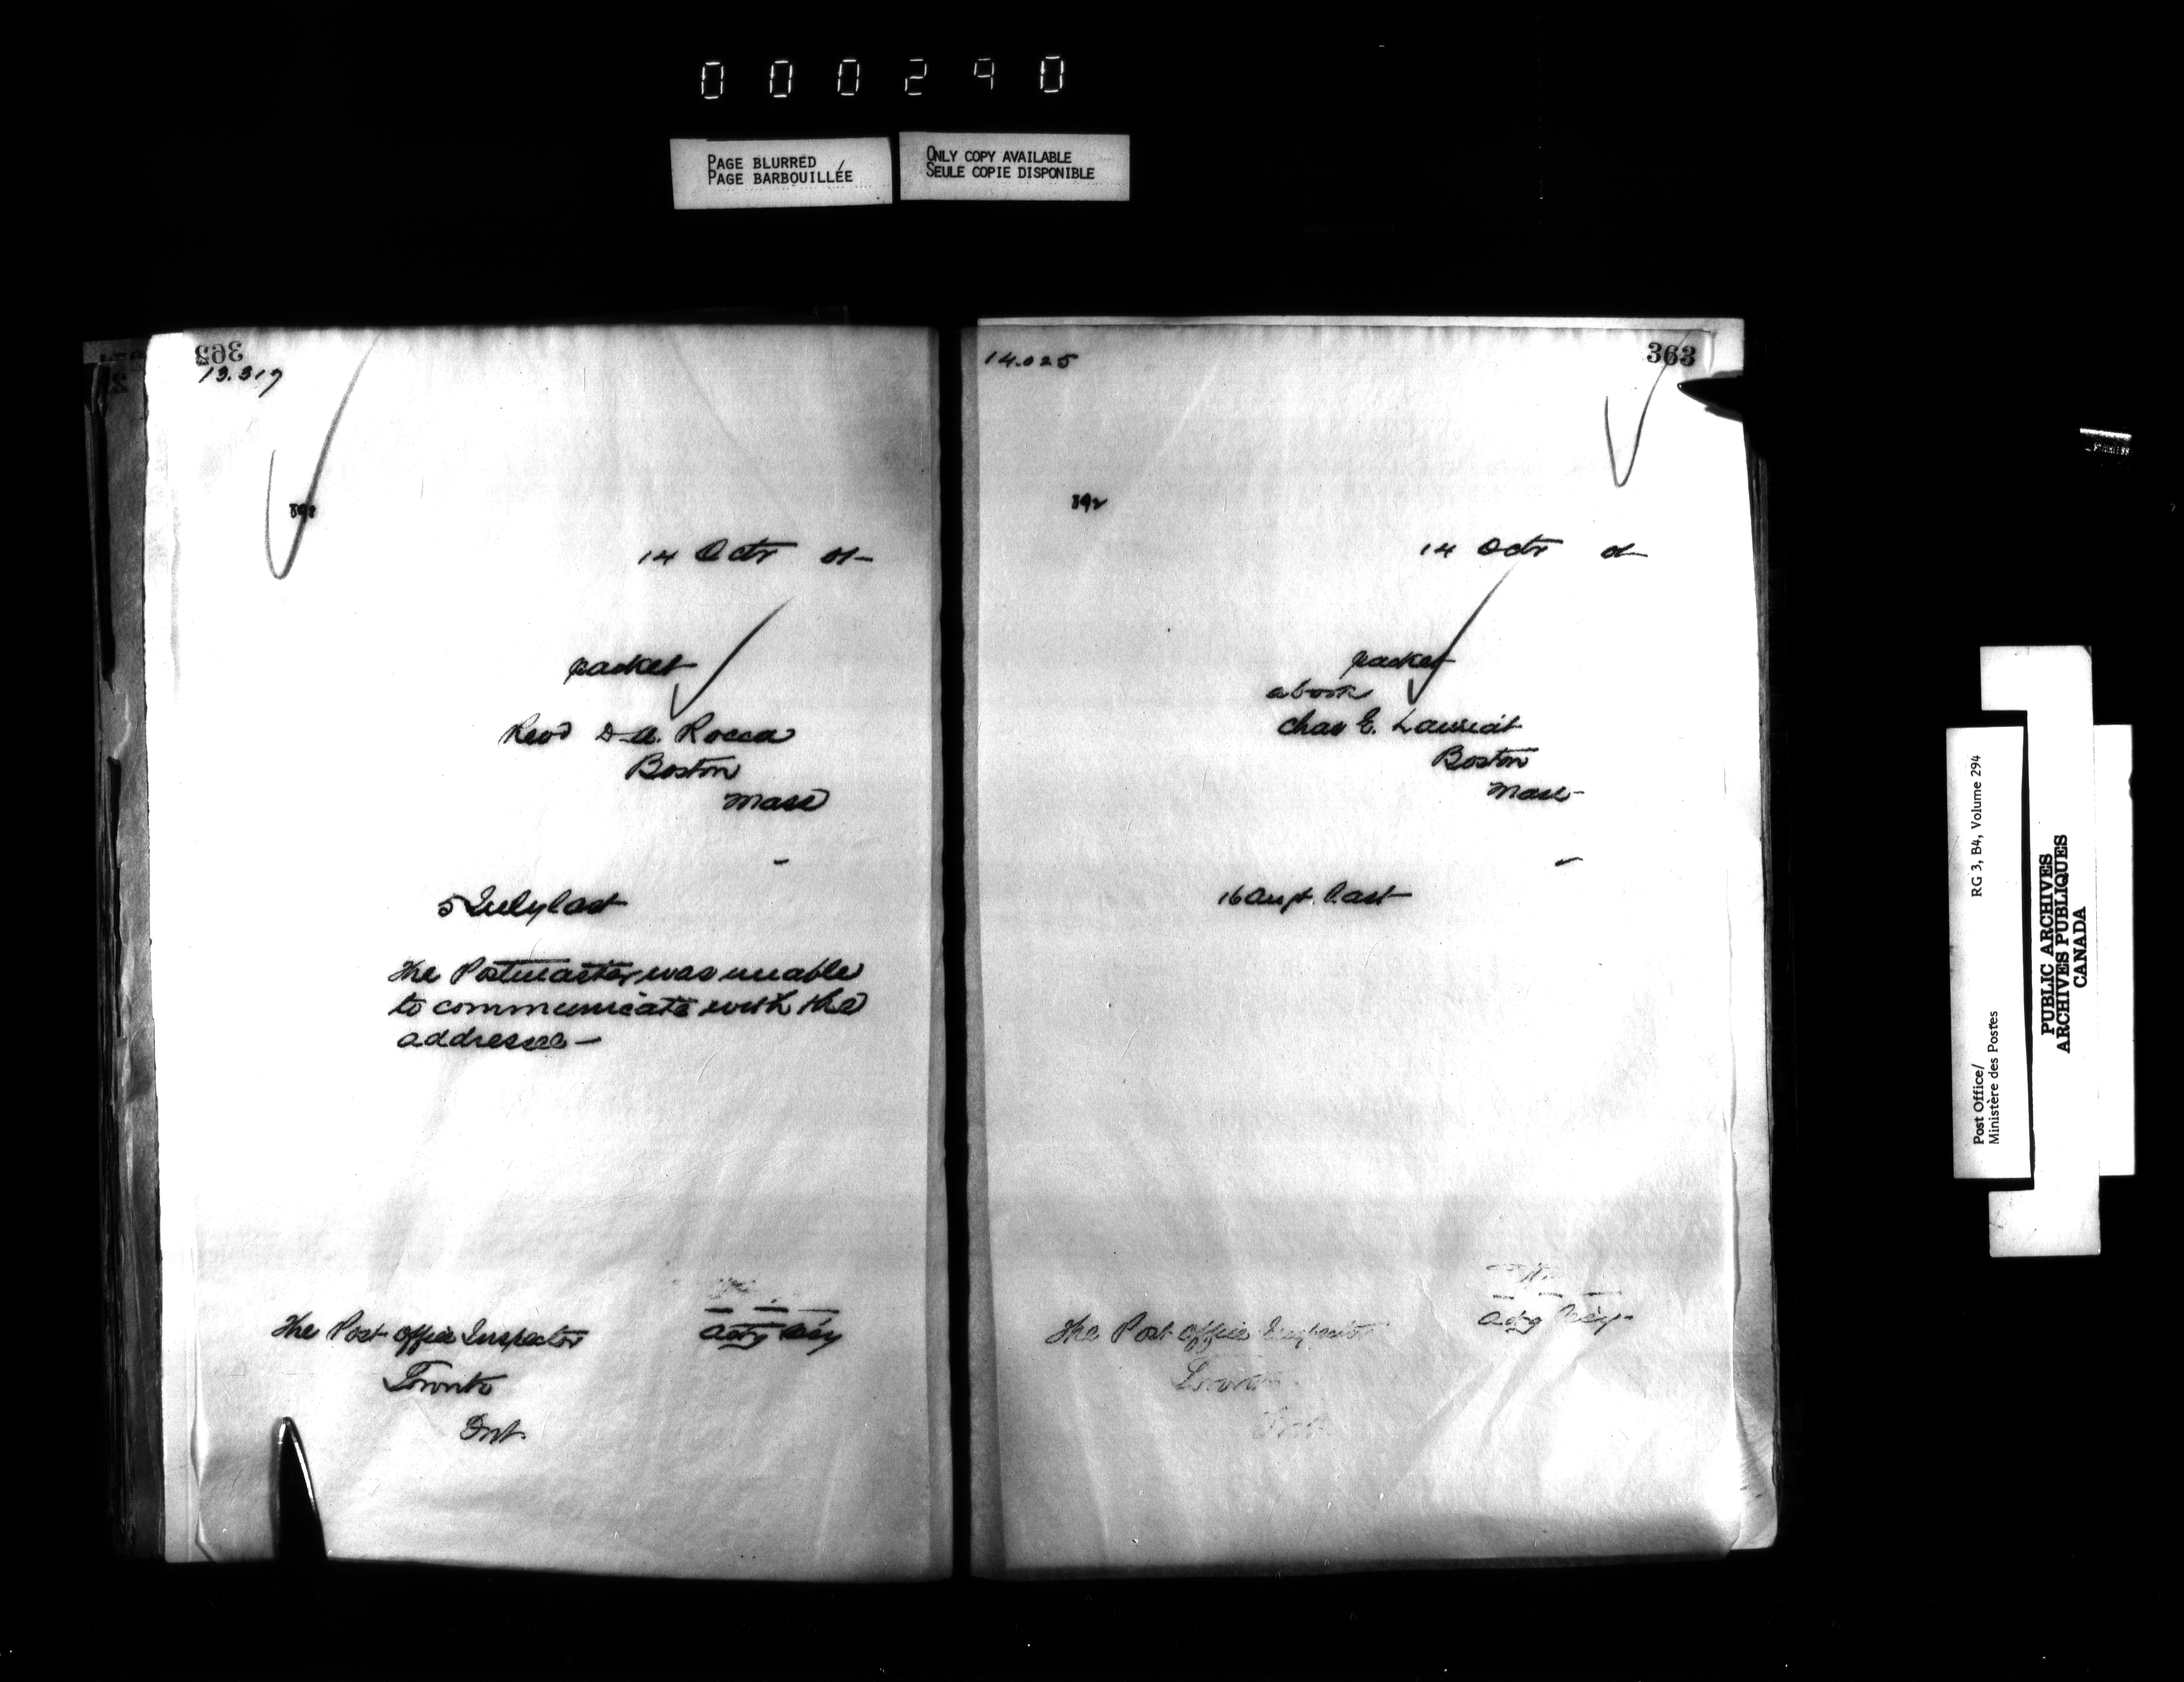 000290
PAGE BLURRED
PAGE BARBOUILLÉE
ONLY COPY AVAILABLE
SEULE COPIE DISPONIBLE
13.317
14 Octr 01-
packet
Revd D. A. Rocca
Boston
Mass
5 July last
The Postmaster was unable
to communicate with the
addressee-
Actg Secy
The Post Office Inspector
Toronto
Ont.
14.025
363
392
14 Octr
packet
a book
Chas E. Lauriat
Boston
Mass-
16 Augt. last
Actg Secy-
The Post Office Inspector
Toronto
Ont.
RG 3, B4, Volume 294
Post Office/
Ministère des Postes
PUBLIC ARCHIVES
ARCHIVES PUBLIQUES
CANADA